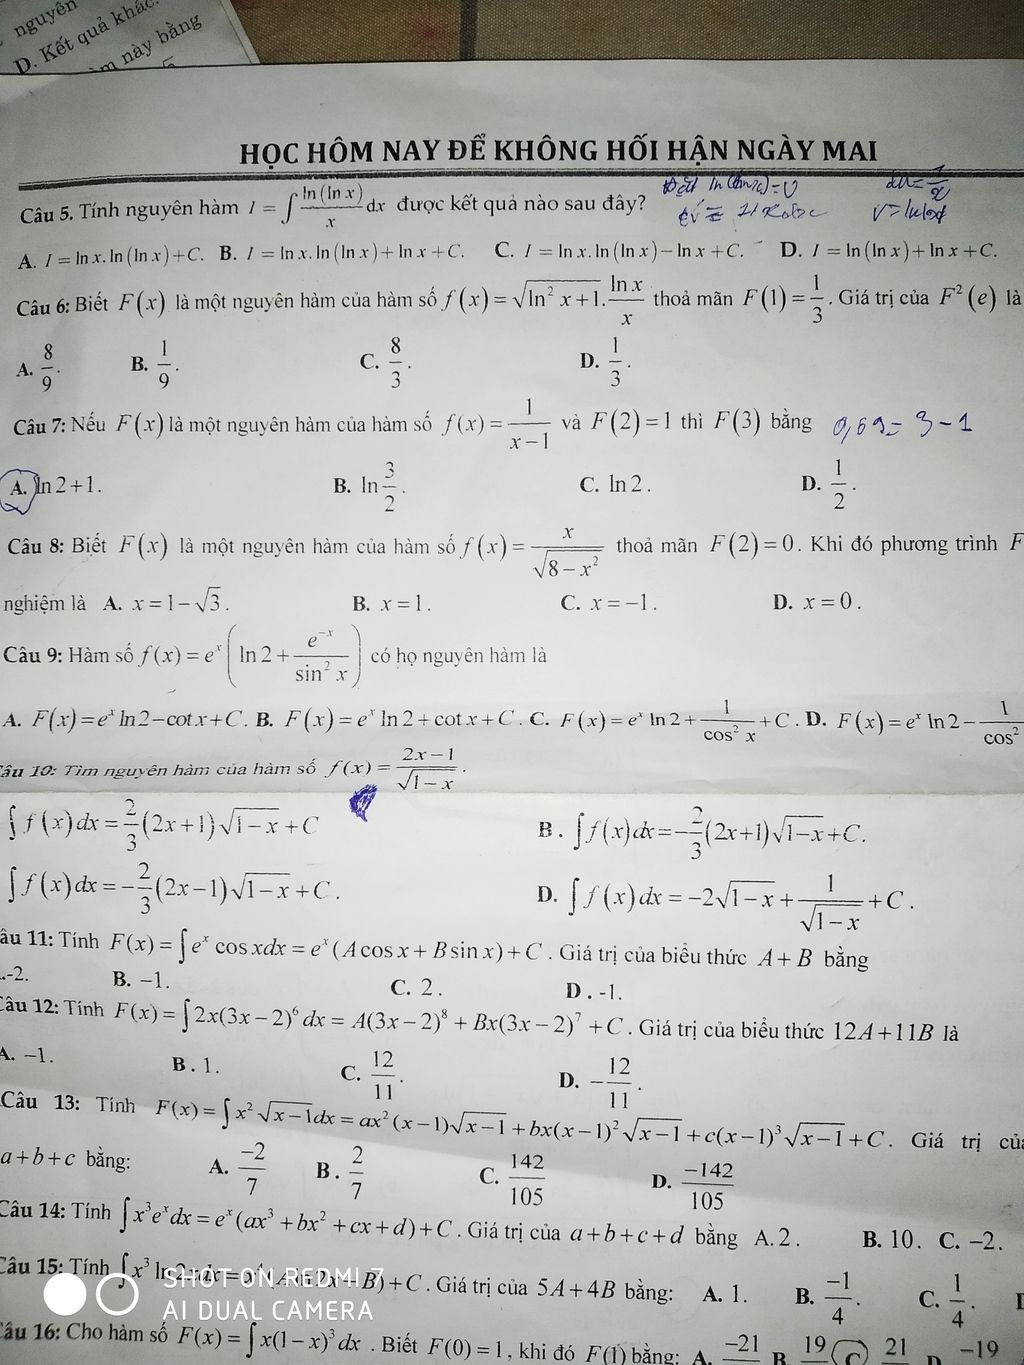 nguyên
D. Kết quả khác.
này bằng
HỌC HÔM NAY ĐỂ KHÔNG HỐI HẬN NGÀY MAI
Câu 5. Tính nguyên hàm I = ∫ ln(ln x)/x dx được kết quả nào sau đây?
A. I = ln x.ln(ln x)+C. B. I = ln x.ln(ln x)+ln x+C. C. I = ln x.ln(ln x)−ln x+C. D. I = ln(ln x)+ln x+C.
Câu 6: Biết F(x) là một nguyên hàm của hàm số f(x) = √(ln² x+1).ln x/x thoả mãn F(1) = 1/3. Giá trị của F²(e) là
A. 8/9. B. 1/9. C. 8/3. D. 1/3.
Câu 7: Nếu F(x) là một nguyên hàm của hàm số f(x) = 1/(x−1) và F(2) = 1 thì F(3) bằng 0,69 = 3 - 1
A. ln 2+1. B. ln 3/2. C. ln 2. D. 1/2.
Câu 8: Biết F(x) là một nguyên hàm của hàm số f(x) = x/√(8−x²) thoả mãn F(2) = 0. Khi đó phương trình F
nghiệm là A. x = 1−√3. B. x = 1. C. x = −1. D. x = 0.
Câu 9: Hàm số f(x) = eˣ(ln 2 + e⁻ˣ/sin² x) có họ nguyên hàm là
A. F(x) = eˣ ln 2−cot x+C. B. F(x) = eˣ ln 2+cot x+C. C. F(x) = eˣ ln 2+1/cos² x+C. D. F(x) = eˣ ln 2−1/cos²
Câu 10: Tìm nguyên hàm của hàm số f(x) = (2x−1)/√(1−x).
∫f(x)dx = 2/3(2x+1)√(1−x)+C B. ∫f(x)dx = −2/3(2x+1)√(1−x)+C.
∫f(x)dx = −2/3(2x−1)√(1−x)+C. D. ∫f(x)dx = −2√(1−x)+1/√(1−x)+C.
âu 11: Tính F(x) = ∫eˣ cos xdx = eˣ(A cos x+B sin x)+C. Giá trị của biểu thức A+B bằng
.-2. B. −1. C. 2. D. -1.
Câu 12: Tính F(x) = ∫2x(3x−2)⁶dx = A(3x−2)⁸+Bx(3x−2)⁷+C. Giá trị của biểu thức 12A+11B là
A. −1. B. 1. C. 12/11. D. −12/11.
Câu 13: Tính F(x) = ∫x²√(x−1)dx = ax²(x−1)√(x−1)+bx(x−1)²√(x−1)+c(x−1)³√(x−1)+C. Giá trị của
a+b+c bằng: A. −2/7 B. 2/7 C. 142/105 D. −142/105
Câu 14: Tính ∫x³eˣdx = eˣ(ax³+bx²+cx+d)+C. Giá trị của a+b+c+d bằng A. 2. B. 10. C. −2.
Câu 15: Tính ∫x³ ln 2x dx = x⁴(A ln 2x+B)+C. Giá trị của 5A+4B bằng: A. 1. B. −1/4. C. 1/4.
SHOT ON REDMI 7
AI DUAL CAMERA
Câu 16: Cho hàm số F(x) = ∫x(1−x)³dx. Biết F(0) = 1, khi đó F(1) bằng: A. −21 B. 19 C 21 D −19